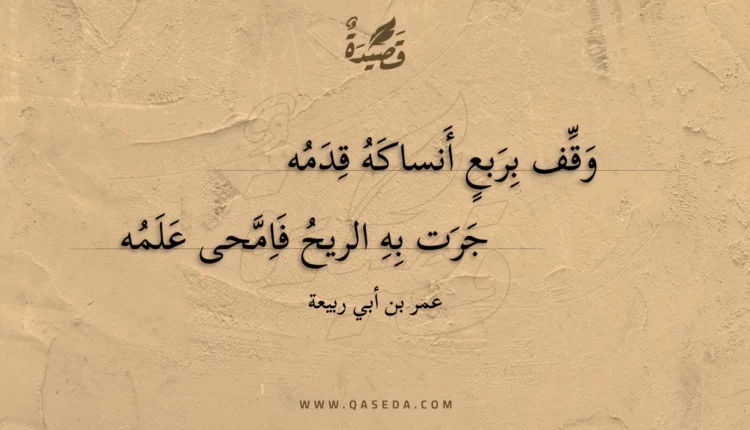 قَصِيْدَةٌ
وَقِّف بِرَبعٍ أَنساكَهُ قِدَمُه
جَرَت بِهِ الريحُ فَاِمَّحى عَلَمُه
عمر بن أبي ربيعة
WWW.QASEDA.COM